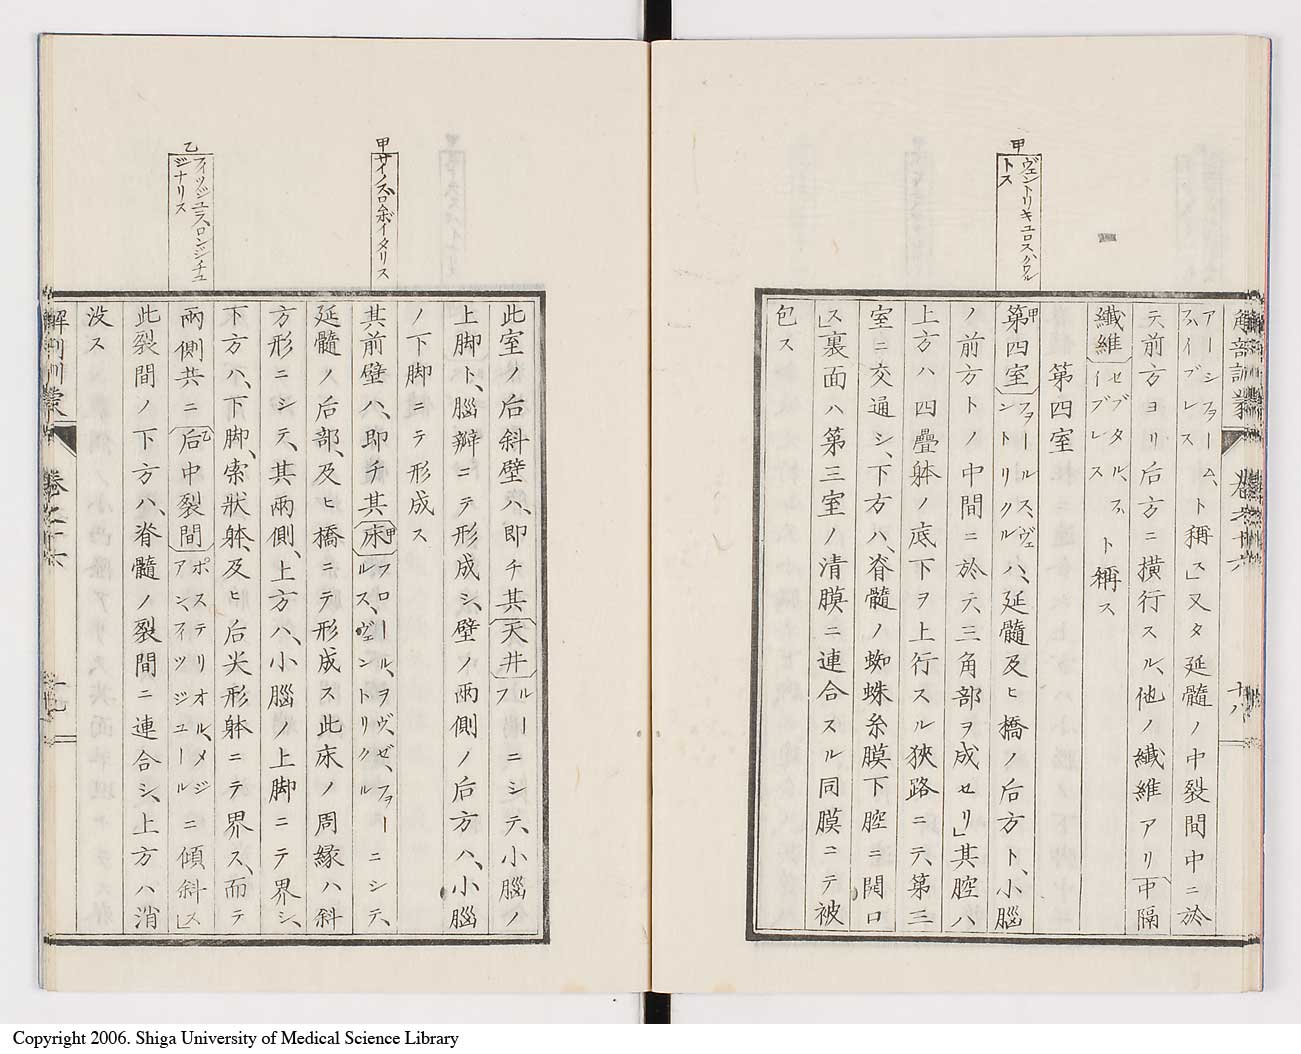 解剖訓蒙 巻之十六 十八
アーシフォーム、ファイブレスト稱ス」又タ延髓ノ中裂間中ニ於
テ前方ヨリ后方ニ横行スル、他ノ纎維アリ「中隔
纎維セプタル、ファイブレスト稱ス
第四室
甲
ヴェントリキュロスハワルトス
甲第四室フヲールス、ヴェントリクルハ、延髓及ヒ橋ノ后方ト、小腦
ノ前方トノ中間ニ於テ三角部ヲ成セリ」其腔ハ
上方ハ四疊躰ノ底下ヲ上行スル狹路ニテ、第三
室ニ交通シ、下方ハ、脊髓ノ蜘蛛糸膜下腔ニ開口
ス」裏面ハ第三室ノ清膜ニ連合スル同膜ニテ被
包ス
此室ノ后斜壁ハ、即チ其天井ルーフニシテ、小腦ノ
上脚ト、腦瓣ニテ形成シ、壁ノ兩側ノ后方ハ、小腦
ノ下脚ニテ形成ス
甲
サイノスロムボイタリス
其前壁ハ、即チ其甲床フロール、ヲヴ、ゼ、フォールス、ヴェントリクルニシテ、
延髓ノ后部、及ヒ橋ニテ形成ス此床ノ周縁ハ斜
方形ニシテ、其兩側、上方ハ、小腦ノ上脚ニテ界シ、
下方ハ、下脚、索狀躰、及ヒ后尖形躰ニテ界ス、而テ
乙
フィッシュラ、ロンジチュジナリス
兩側共ニ乙后中裂間ポステリオル、メジアン、フィッジュールニ傾斜ス」
此裂間ノ下方ハ、脊髓ノ裂間ニ連合シ、上方ハ消
没ス
解剖訓蒙 巻之十六
Copyright 2006. Shiga University of Medical Science Library